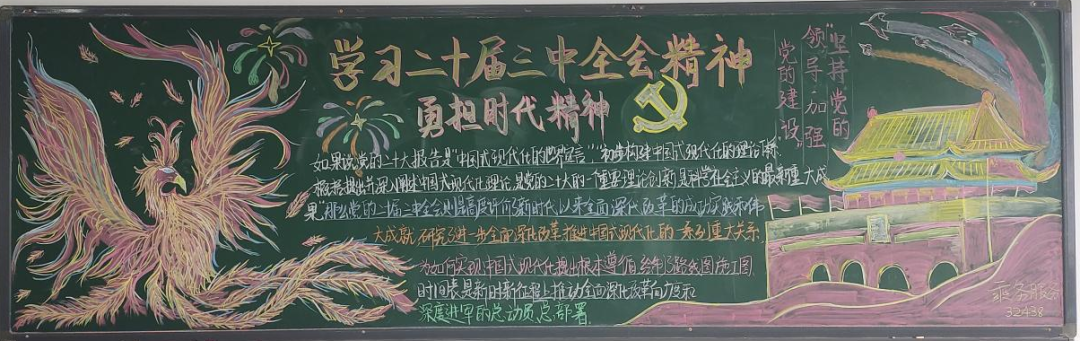 学习二十届三中全会精神
勇担时代精神
"坚持党的
领导·加强
党的建设"
如果说党的二十大报告是"中国式现代化的世界宣言",初步构建中国式现代化的理论
概括提出并深入阐述中国式现代化理论是党的二十大的一个重要理论创新,是科学社会主义的最新重大成
果"那么党的二十届三中全会则是高度评价了新时代以来全面深化改革的成功实践和伟
大成就研究了进一步全面深化改革推进中国式现代化的一系列重大关系
为如何实现中国式现代化提出根本遵循绘制了路线图施工图
时间表是新时新征程上推动全面深化改革向广度和
深度进军的总动员总部署.
乘务服
32438